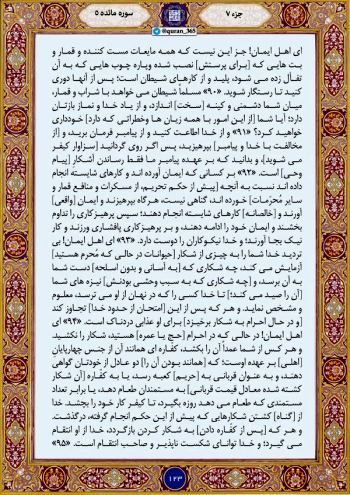 جزء ۷
@quran_365
سوره مائده ۵
ای اهل ایمان! جز این نیست که همه مایعات مست کننده و قمار و
بت هایی که [برای پرستش] نصب شده وپاره چوب هایی که به آن
تفأل زده می شود، پلید و از کارهای شیطان است؛ پس از آنها دوری
کنید تا رستگار شوید. «۹۰» مسلماً شیطان می خواهد با شراب و قمار،
میان شما دشمنی و کینه [سخت] اندازد، و از یاد خدا و نماز بازتان
دارد؛ آیا شما [از این امور با همه زیان ها وخطراتی که دارد] خودداری
خواهید کرد؟ «۹۱» و از خدا اطاعت کنید و از پیامبر فرمان برید، و [از
مخالفت با خدا و پیامبر] بپرهیزید. پس اگر روی گردانید [سزاوار کیفر
می شوید]، و بدانید که بر عهده پیامبر ما فقط رساندن آشکار [پیام
وحی] است. «۹۲» بر کسانی که ایمان آورده اند و کارهای شایسته انجام
داده اند نسبت به آنچه [پیش از حکم تحریم، از مسکرات و منافع قمار و
سایر محرّمات] خورده اند، گناهی نیست، هرگاه بپرهیزند و ایمان [واقعی]
آورند و [خالصانه] کارهای شایسته انجام دهند؛ سپس پرهیزکاری را تداوم
بخشند و ایمان خود را ادامه دهند، و بر پرهیزکاری پافشاری ورزند و کار
نیک بجا آورند؛ و خدا نیکوکاران را دوست دارد. «۹۳» ای اهل ایمان! بی
تردید خدا شما را به چیزی از شکار [حیوانات در حالی که مُحرم هستید]
آزمایش می کند، چه شکاری که [به آسانی و بدون اسلحه] دست شما
به آن برسد، و [چه شکاری که به سبب وحشی بودنش] نیزه های شما
[آن را صید می کند]؛ تا خدا کسی را که در نهان از او می ترسد، معلوم
و مشخص نماید. و هر که پس از این [امتحان از حدود خدا] تجاوز کند
[و در حال احرام به شکار برخیزد] برای او عذابی دردناک است. «۹۴» ای
اهل ایمان! در حالی که در احرام [حج یا عمره] هستید، شکار را نکشید.
و هر کس از شما عمداً آن را بکشد، کفّاره ای همانند آن از جنس چهارپایان
[اهلی] بر عهده اوست؛ که [همانند بودن آن را] دو عادل از خودتان گواهی
دهند، و به عنوان قربانی به [حریم] کعبه رسد، یا به کفّاره [آن شکار
کشته شده معادل قیمت قربانی] به مستمندان طعام دهد، یا برابر تعداد
مستمندی که طعام می دهد روزه بگیرد، تا کیفر کار خود را بچشد. خدا
از [گناه] کشتن شکارهایی که پیش از این حکم انجام گرفته، درگذشت.
و هر که [پس از کفّاره دادن] به شکار کردن بازگردد، خدا از او انتقام
می گیرد؛ و خدا توانای شکست ناپذیر و صاحب انتقام است. «۹۵»
۱۲۳